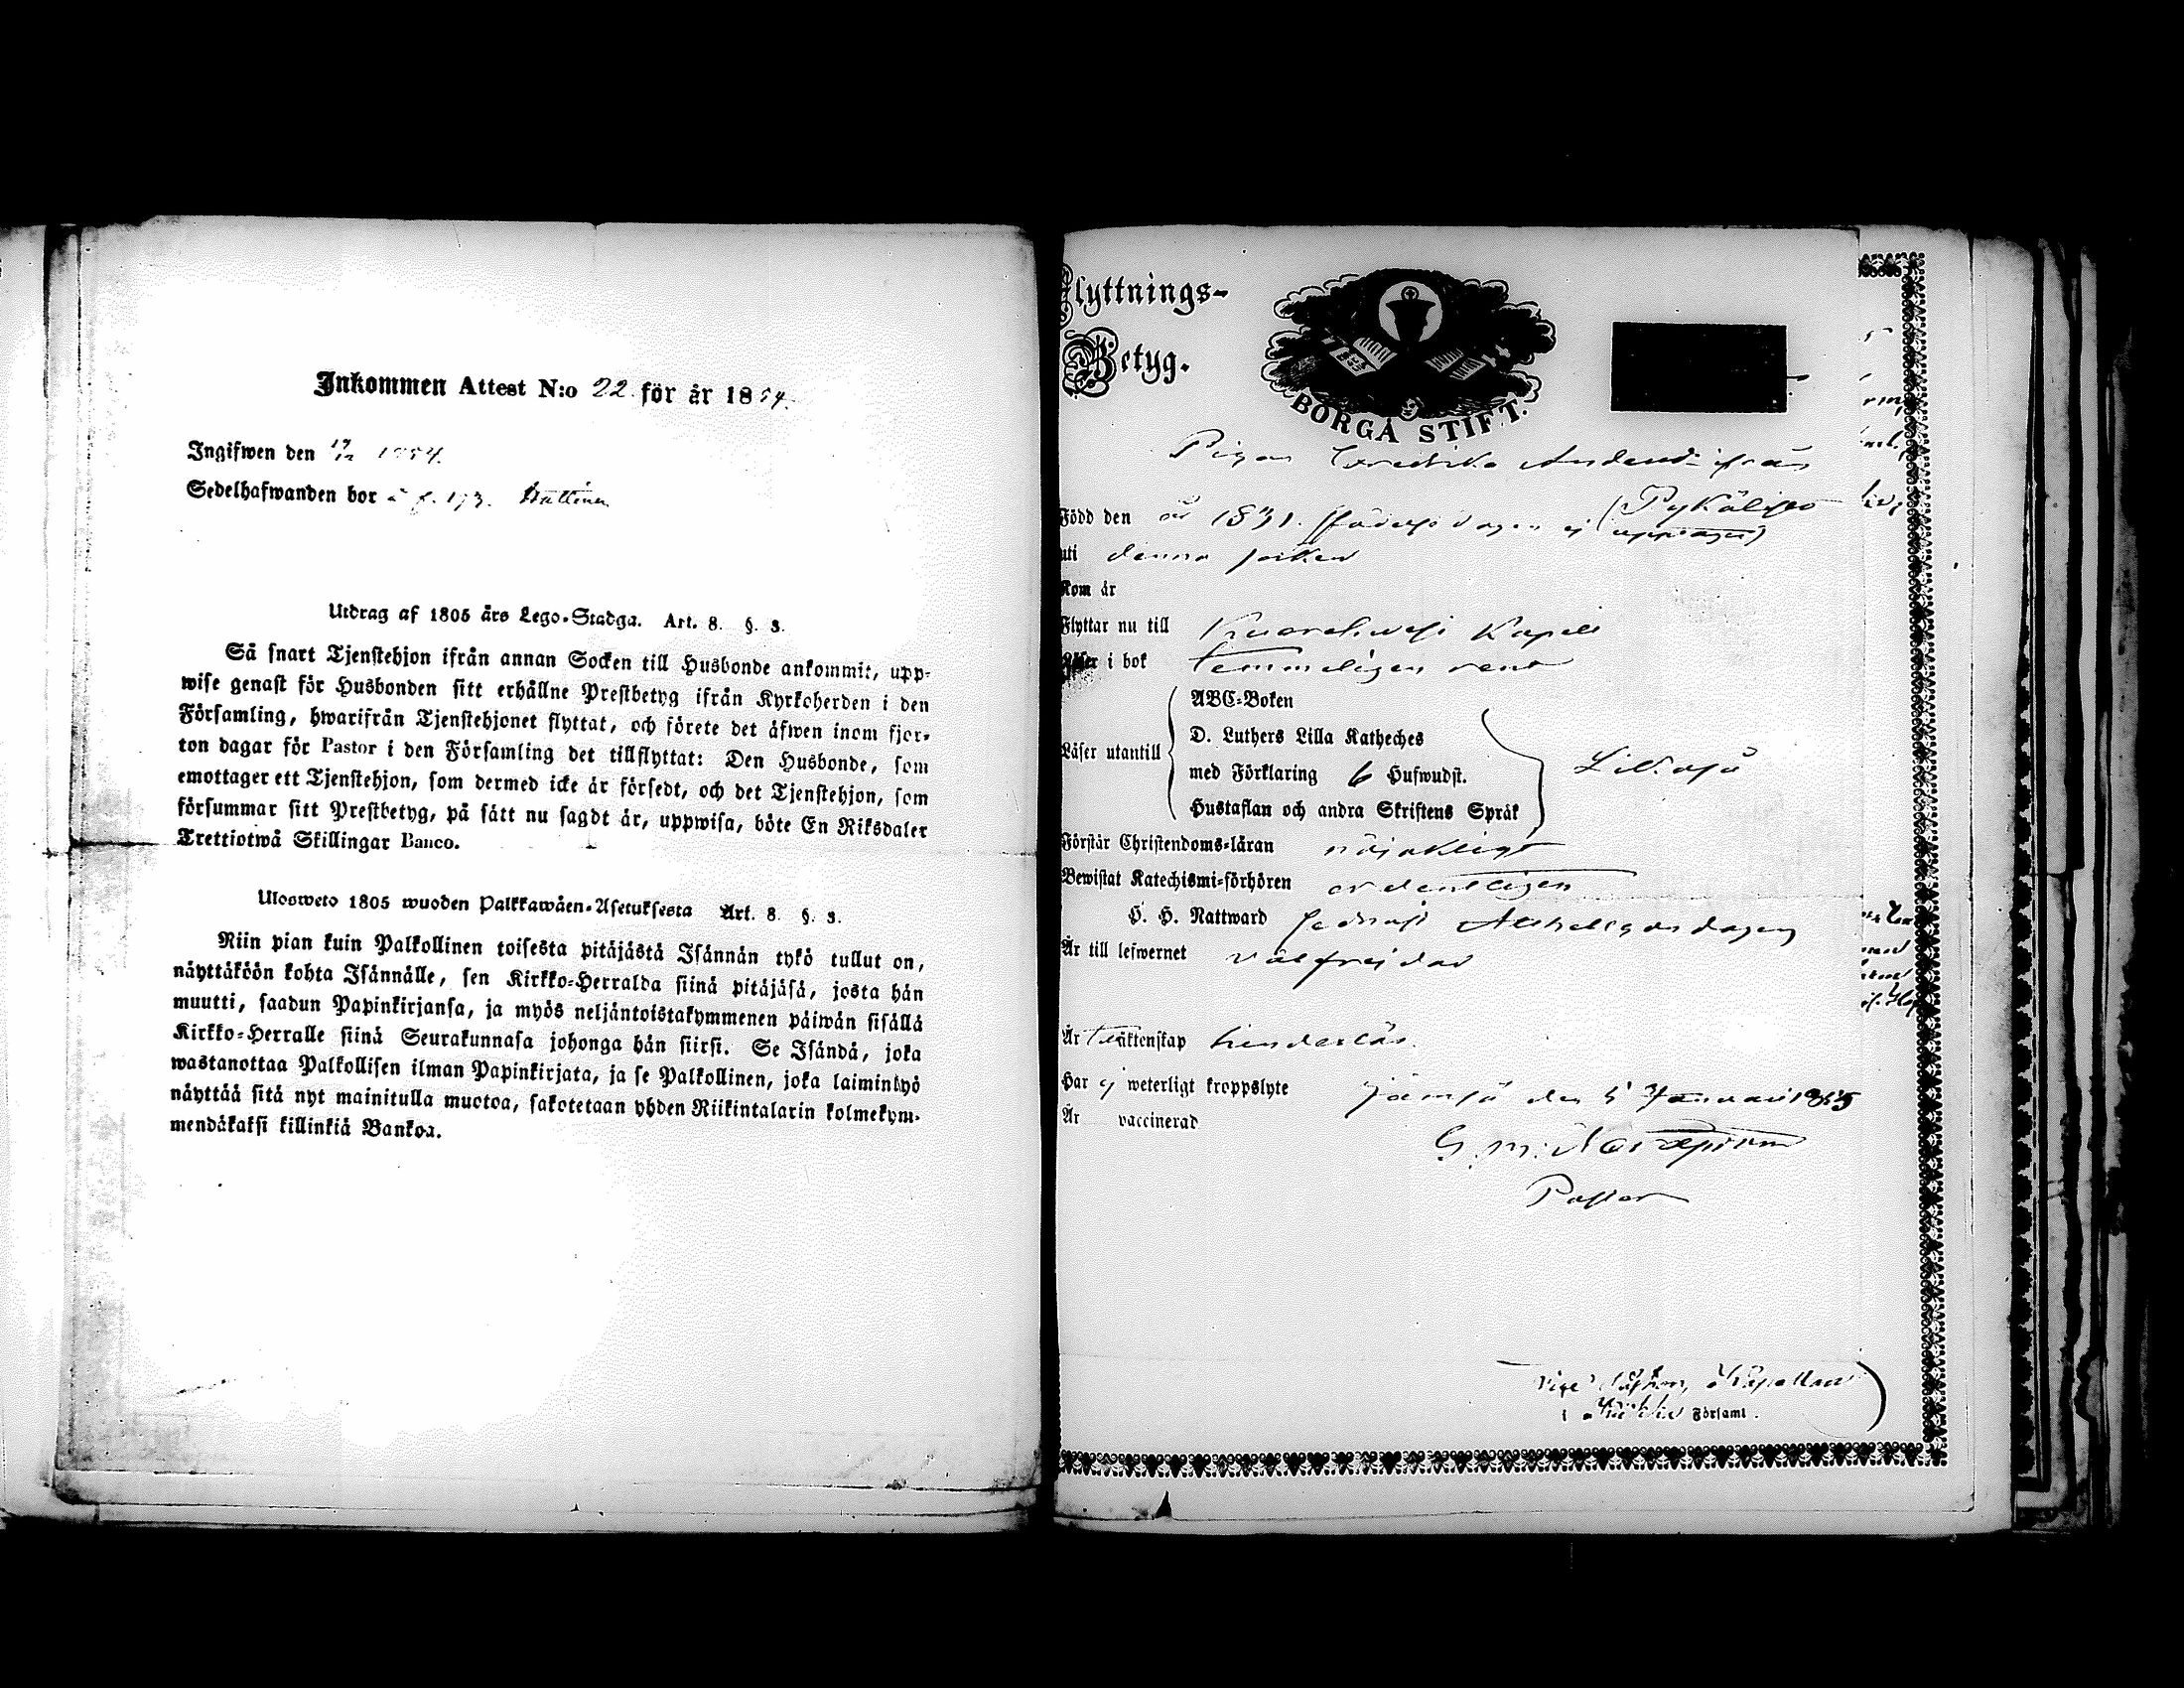 Inkommen Attest N:o 22. för år 1854.
Ingifwen den 17/12 1854.
Sedelhafwanden bor å f. 173. Hattina
Utdrag af 1805 års Lego-Stadga. Art. 8. §. 3.
Så snart Tjenstehjon ifrån annan Socken till Husbonde ankommit, upp-
wise genast för Husbonden sitt erhållne Prestbetyg ifrån Kyrkoherden i den
Församling, hwarifrån Tjenstehjonet flyttat, och förete det äfwen inom fjor-
ton dagar för Pastor i den Församling det tillflyttat: Den Husbonde, som
emottager ett Tjenstehjon, som dermed icke är försedt, och det Tjenstehjon, som
försummar sitt Prestbetyg, på sätt nu sagdt är, uppwisa, böte En Riksdaler
Trettiotwå Skillingar Banco.
Ulosweto 1805 wuoden Palkkawäen-Asetuksesta Art. 8. §. 3.
Niin pian kuin Palkollinen toisesta pitäjästä Isännän tykö tullut on,
näyttäköön kohta Isännälle, sen Kirkko-Herralda siinä pitäjäsä, josta hän
muutti, saadun Papinkirjansa, ja myös neljäntoistakymmenen päiwän sisällä
Kirkko-Herralle siinä Seurakunnasa johonga hän siirsi. Se Isändä, joka
wastanottaa Palkollisen ilman Papinkirjata, ja se Palkollinen, joka laiminlyö
näyttää sitä nyt mainitulla muotoa, sakotetaan yhden Riikintalarin kolmekym-
mendäkaksi killinkiä Bankoa.
Flyttnings-
Betyg.
BORGÅ STIFT.
Pigan Fredrika ifrån
Pykälistö
Född den år 1831. (födelsedagen ej upptagen)
uti denna socken
Kom år
Flyttar nu till Kuorehwesi Kapell
Läser i bok temmeligen rent
ABC-Boken
D. Luthers Lilla Katheches
Läser utantill
med Förklaring 6 Hufwudst.
Likaså
Hustaflan och andra Skriftens Språk
Förstår Christendoms-läran nöjaktigt
Bewistat Katechismi-förhören ordentligen
H. H. Nattward sednast Allhelgondagen
Är till lefwernet välfrejdad
Är till äktenskap hinderlös.
Har ej weterligt kroppslyte Jämsä den 5 Januari 1855
Är vaccinerad
G. M.
Pastor
Vice Pastor, Kapellan
i Församl.